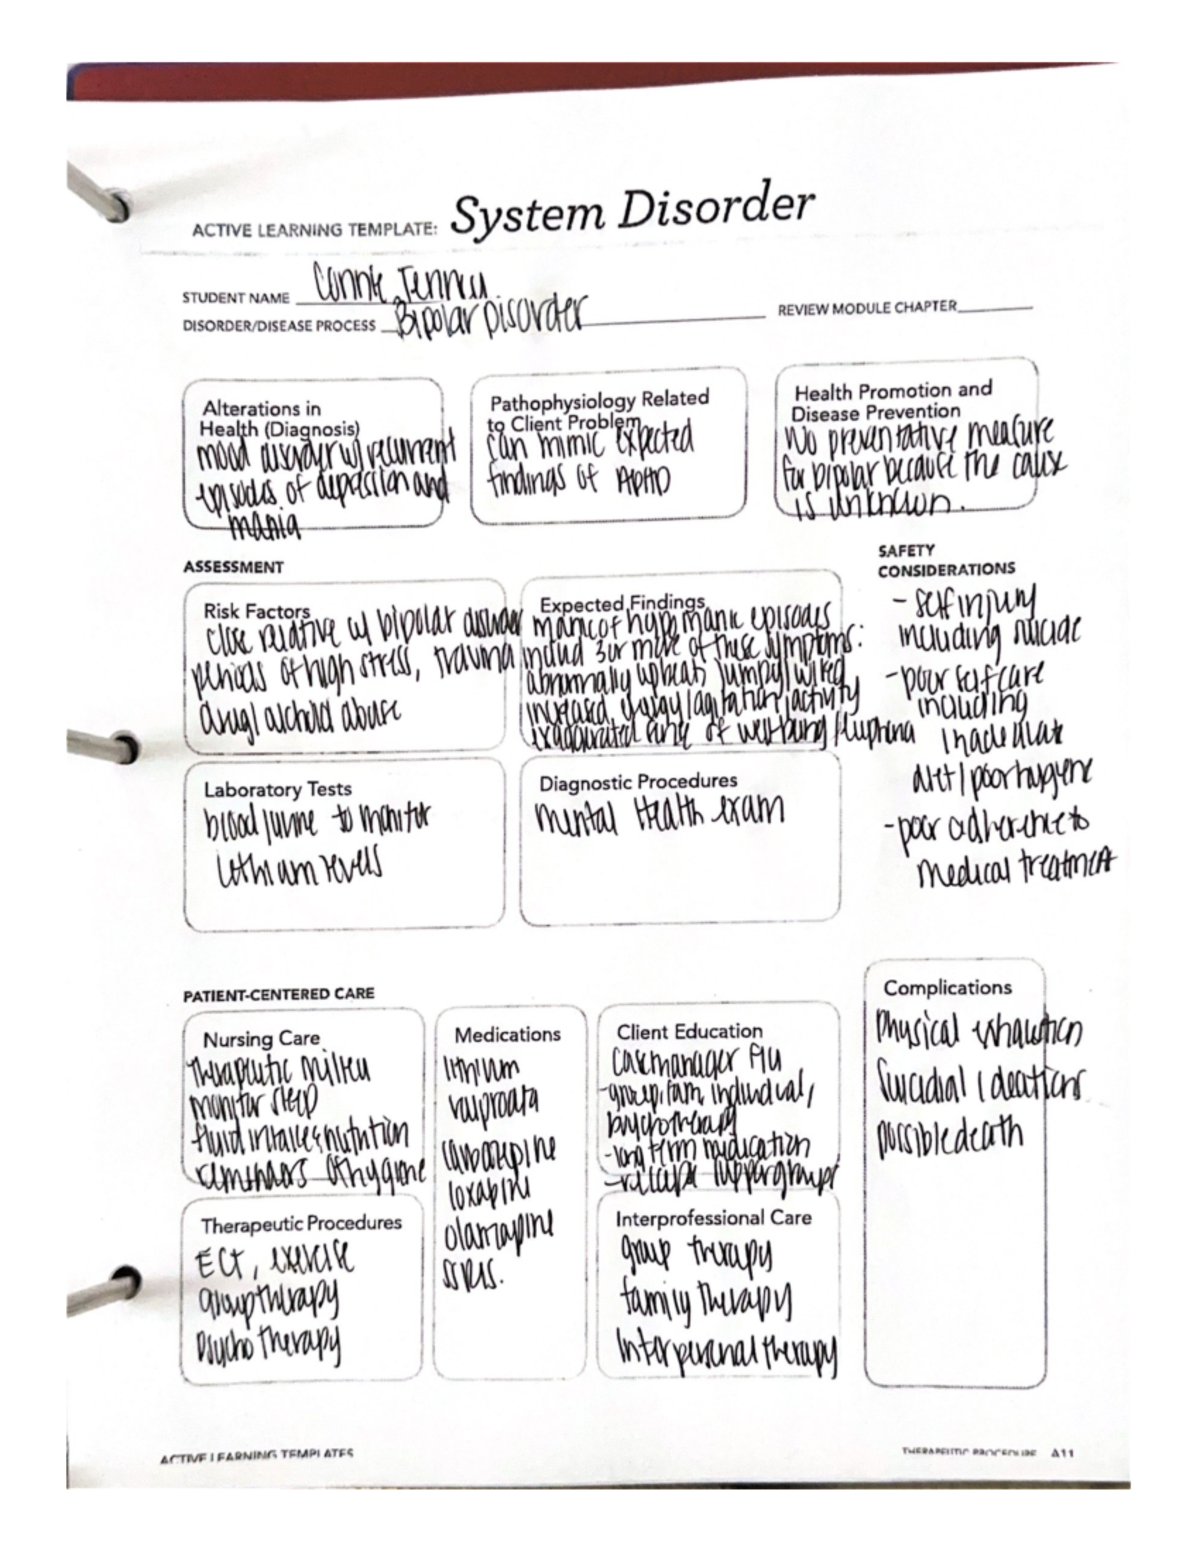 ACTIVE LEARNING TEMPLATE: System Disorder
STUDENT NAME Connie
DISORDER/DISEASE PROCESS Bipolar Disorder
REVIEW MODULE CHAPTER
Alterations in
Health (Diagnosis)
mood disorder w/ recurrent
episodes of depression and
mania
Pathophysiology Related
to Client Problem
can mimic expected
findings of ADHD
Health Promotion and
Disease Prevention
No preventative measure
for bipolar because the cause
is unknown.
ASSESSMENT
SAFETY
CONSIDERATIONS
Risk Factors
close relative w/ bipolar disorder
periods of high stress, trauma
drug/ alcohol abuse
Expected Findings
manic of hypomanic episodes
3 or more of these symptoms:
abnormally upbeat, jumpy/wired
increased energy/agitation/activity
of well-being/euphoria
- self injury
including suicide
- poor self care
including
inadequate
diet/poor hygiene
- poor adherence to
medical treatment
Laboratory Tests
blood/urine to monitor
lithium levels
Diagnostic Procedures
mental Health exam
PATIENT-CENTERED CARE
Nursing Care
Therapeutic milieu
monitor sleep
fluid intake & nutrition
reminders of hygiene
Medications
lithium
loxapine
SSRIs.
Client Education
case manager F/u
- group, fam, individual,
psychotherapy
- long term medication
- support groups
Complications
physical exhaustion
suicidial ideations
possible death
Therapeutic Procedures
ECT, exercise
group therapy
psycho therapy
Interprofessional Care
group therapy
family therapy
Interpersonal therapy
ACTIVE LEARNING TEMPLATES
THERAPEUTIC PROCEDURE A11